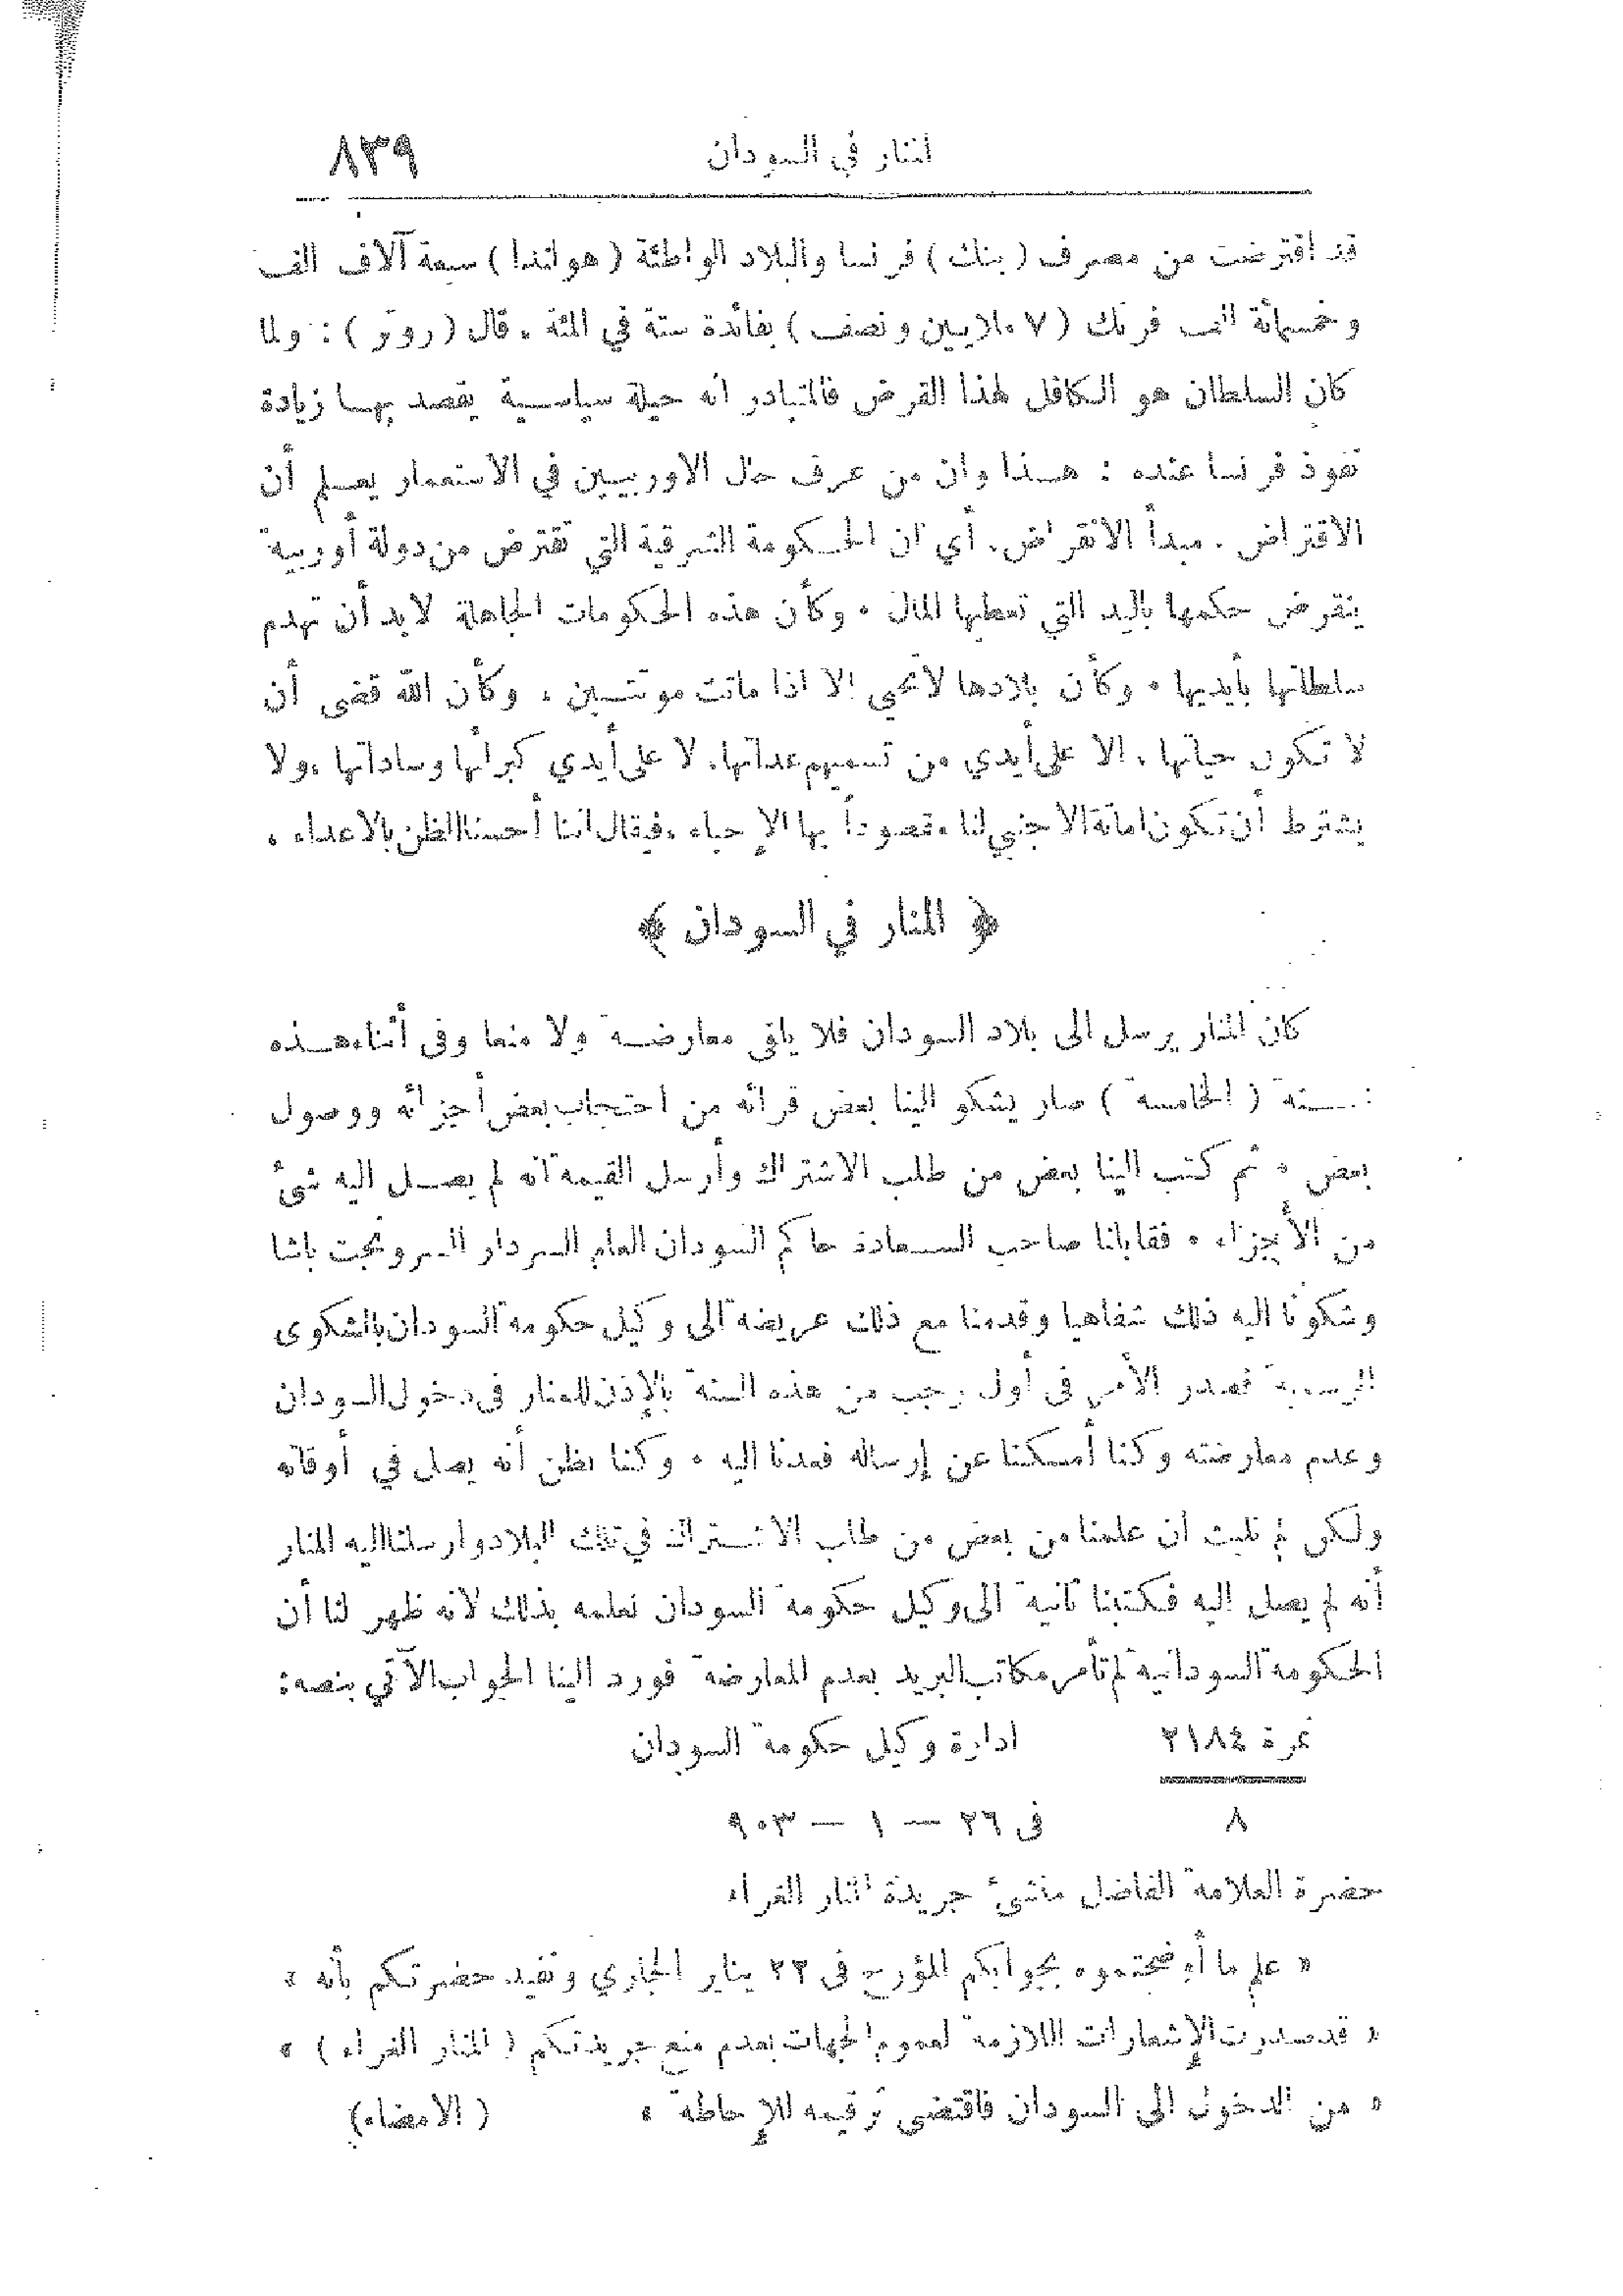 المنار في السودان ٨٣٩
قد اقترضت من مصرف (بنك) فرنسا والبلاد الواطئة (هولندا) سبعة آلاف الف
وخمسمائة الف فرنك (٧ ملايين ونصف) بفائدة ستة في المئة . قال (روتر) : ولما
كان السلطان هو الكافل لهذا القرض فالمتبادر انه حيلة سياسية يقصد بها زيادة
نفوذ فرنسا عنده : هذا وان من عرف حال الاوربيين في الاستعمار يعلم أن
الاقتراض . مبدأ الانقراض . أي ان الحكومة الشرقية التي تقترض من دولة أوربية
ينقرض حكمها باليد التي تعطيها المال . وكأن هذه الحكومات الجاهلة لا بد أن تهدم
سلطاتها بأيديها . وكأن بلادها لا تحيى إلا اذا ماتت موتتين . وكأن الله قضى أن
لا تكون حياتها . الا على أيدي من تسميهم عداتها . لا على أيدي كبرائها وساداتها . ولا
يشترط أن تكون اماتة الاجنبي لنا مقصوداً بها الإحياء . فيقال اننا أحسنا الظن بالاعداء .
﴿ المنار في السودان ﴾
كان المنار يرسل الى بلاد السودان فلا يلقى معارضة ولا منعا وفى أثناء هذه
السنة (الخامسة) صار يشكو الينا بعض قرائه من احتجاب بعض أجزائه ووصول
بعض . ثم كتب الينا بعض من طلب الاشتراك وأرسل القيمة انه لم يصل اليه شئ
من الأجزاء . فقابلنا صاحب السعادة حاكم السودان العام السردار السر ونجت باشا
وشكونا اليه ذلك شفاهيا وقدمنا مع ذلك عريضة الى وكيل حكومة السودان بالشكوى
الرسمية فصدر الأمر فى أول رجب من هذه السنة بالإذن للمنار فى دخول السودان
وعدم معارضته وكنا أمسكنا عن إرساله فعدنا اليه . وكنا نظن أنه يصل في أوقاته
ولكن لم نلبث ان علمنا من بعض من طلب الاشتراك في تلك البلاد وارسلنا اليه المنار
أنه لم يصل اليه فكتبنا ثانية الى وكيل حكومة السودان نعلمه بذلك لانه ظهر لنا أن
الحكومة السودانية لم تأمر مكاتب البريد بعدم المعارضة فورد الينا الجواب الآتي بنصه :
نمرة ٢١٨٤ ادارة وكيل حكومة السودان
٨ فى ٢٦ — ١ — ٩٠٣
حضرة العلامة الفاضل منشئ جريدة المنار الغراء
« علم ما أوضحتموه بجوابكم المؤرخ فى ٢٣ يناير الجاري ونفيد حضرتكم بأنه »
« قد صدرت الإشعارات اللازمة لعموم الجهات بعدم منع جريدتكم (المنار الغراء) »
« من الدخول الى السودان فاقتضى ترقيمه للإحاطة » (الامضاء)